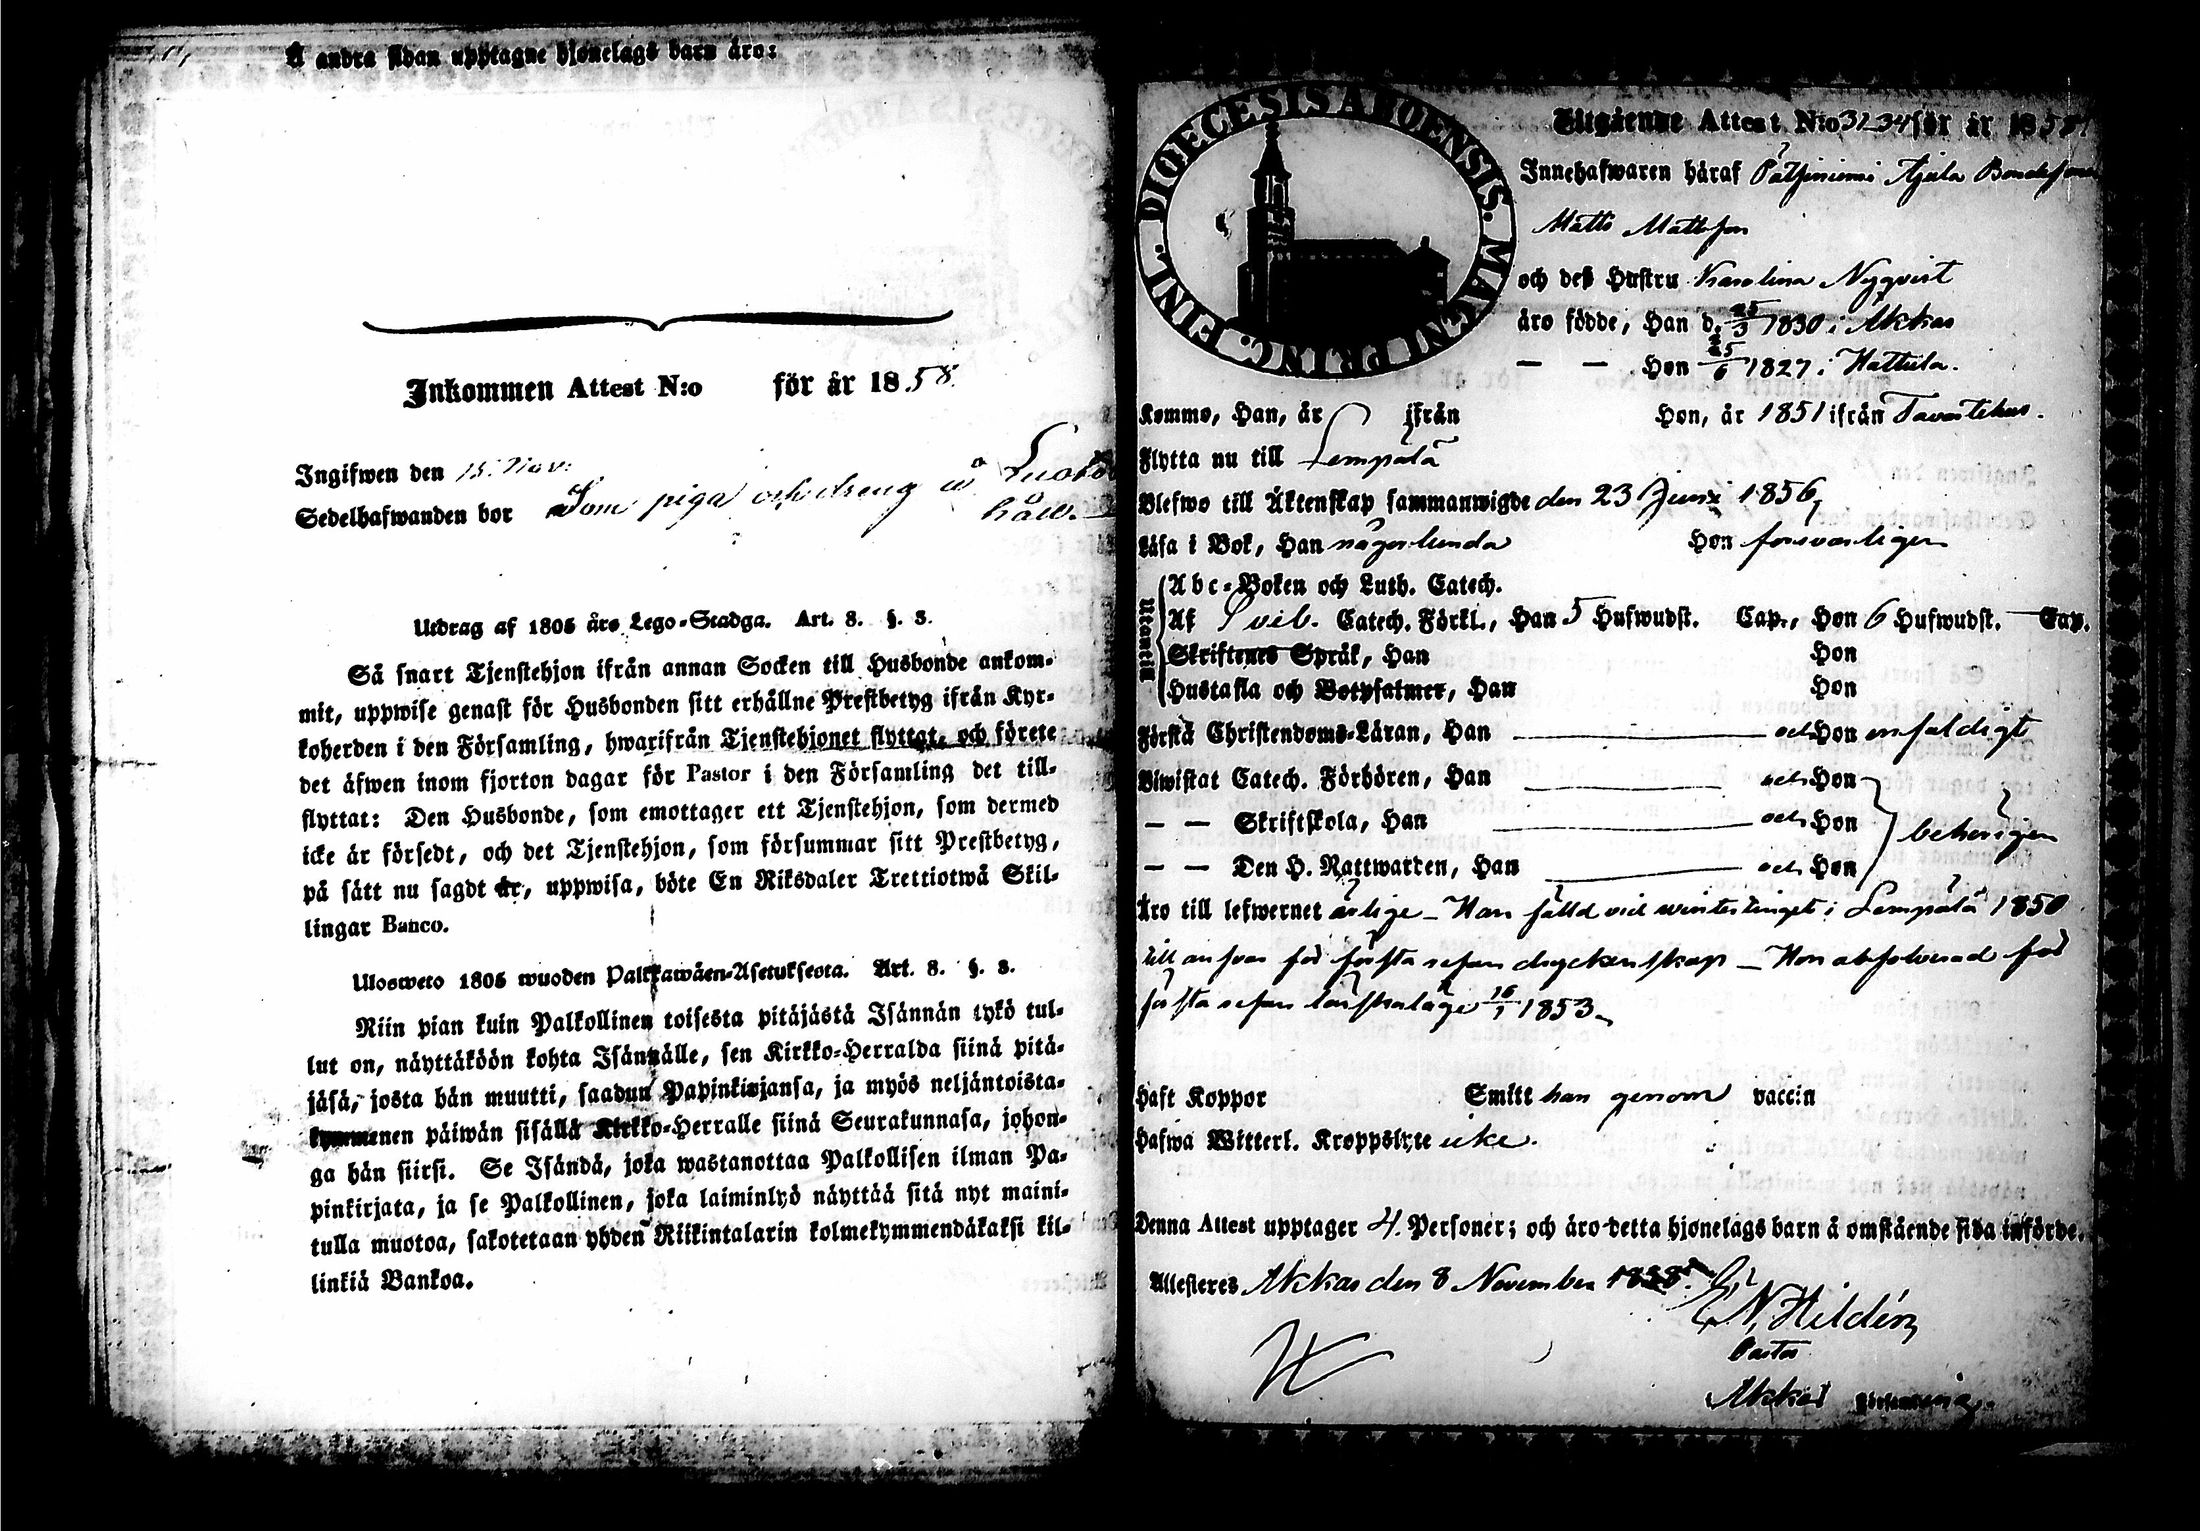 Å andra sidan upptagne hjonelags barn äro:
Inkommen Attest N:o för år 1858.
Ingifwen den 15. Nov:
Sedelhafwanden bor Som piga och dreng å
Utdrag af 1805 års Lego-Stadga. Art. 8. §. 3.
Så snart Tjenstehjon ifrån annan Socken till Husbonde ankom-
mit, uppwise genast för Husbonden sitt erhållne Prestbetyg ifrån Kyr-
koherden i den Församling, hwarifrån Tjenstehjonet flyttat, och förete
det äfwen inom fjorton dagar för Pastor i den Församling det till-
flyttat: Den Husbonde, som emottager ett Tjenstehjon, som dermed
icke är försedt, och det Tjenstehjon, som försummar sitt Prestbetyg,
på sätt nu sagdt är, uppwisa, böte En Riksdaler Trettiotwå Skil-
lingar Banco.
Ulosweto 1805 wuoden Palkkawäen-Asetuksesta. Art. 8. §. 3.
Niin pian kuin Palkollinen toisesta pitäjästä Isännän tykö tul-
lut on, näyttäköön kohta Isännälle, sen Kirkko-Herralda siinä pitä-
jäsä, josta hän muutti, saadun Papinkirjansa, ja myös neljäntoista-
kymmenen päiwän sisällä Kirkko-Herralle siinä Seurakunnasa, johon-
ga hän siirsi. Se Isändä, joka wastanottaa Palkollisen ilman Pa-
pinkirjata, ja se Palkollinen, joka laiminlyö näyttää sitä nyt maini-
tulla muotoa, sakotetaan yhden Riikintalarin kolmekymmendäkaksi kil-
linkiä Bankoa.
DIOECESIS ABOENSIS. MAGNI PRINC. FINL.
Utgående Attest N:o 31_34 för år 1858.
Innehafwaren häraf Päljniemi Ajula Bondeson
Matts Mattsson
och deß Hustru Karolina Nyqvist
äro födde, Han d. 25/3 1830 i Akkas
— — Hon 25/6 1827 i Hattula.
Kommo, Han, år ifrån Hon, år 1851 ifrån Tavastehus.
Flytta nu till Lempälä
Blefwo till Äktenskap sammanwigde den 23 Juni 1856,
Läsa i Bok, Han någorlunda Hon försvarligen
Utantill
Abc-Boken och Luth. Catech.
Af Svib. Catech. Förkl., Han 5 Hufwudst. Cap., Hon 6 Hufwudst. — Cap.
Skriftenes Språk, Han Hon
Hustafla och Botpsalmer, Han Hon
Förstå Christendoms-Läran, Han och Hon enfaldigt
Biwistat Catech. Förhören, Han och Hon
— — Skriftskola, Han och Hon behörigen
— — Den H. Nattwarden, Han och Hon
Äro till lefwernet ärlige — Han fälld vid wintertinget i Lempälä 1850
till ansvar för första resan dryckenskap — Hon absolverad för
första resan lönskaläge 16/1 1853.
Haft Koppor Smitt han genom vaccin
Hafwa Witterl. Kroppslyte icke.
Denna Attest upptager 4. Personer; och äro detta hjonelags barn å omstående sida införde.
Attesteres Akkas den 8 November 1858.
N. Hildén
Pastor
Akkas